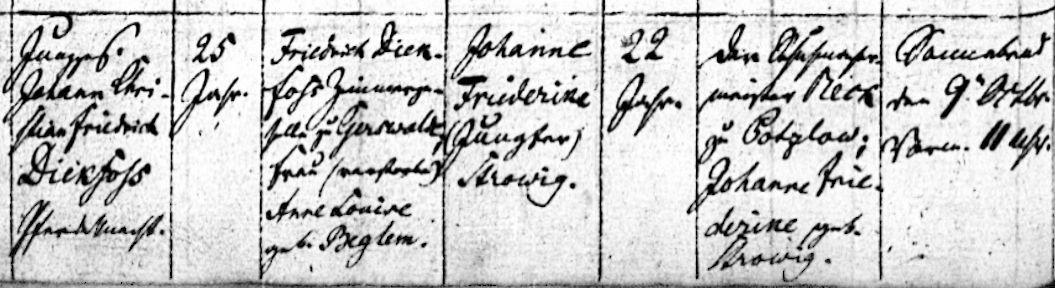 Jungges.
Johann Chri-
stian Friedrich
Dickfohs
Pferdeknecht.
25
Jahr.
Friedrich Dick-
fohs Zimmerge-
selle zu Gerswalde,
Frau (verstorben)
Anne Louise
geb. Beglem.
Johanne
Friederike
(Jungfer)
Strowig.
22
Jahr.
Der
meister Reck
zu Potzlow;
Johanne Frie-
derike geb.
Strowig.
Sonnabend
den 9" Octbr.
Vorm. 11 Uhr.